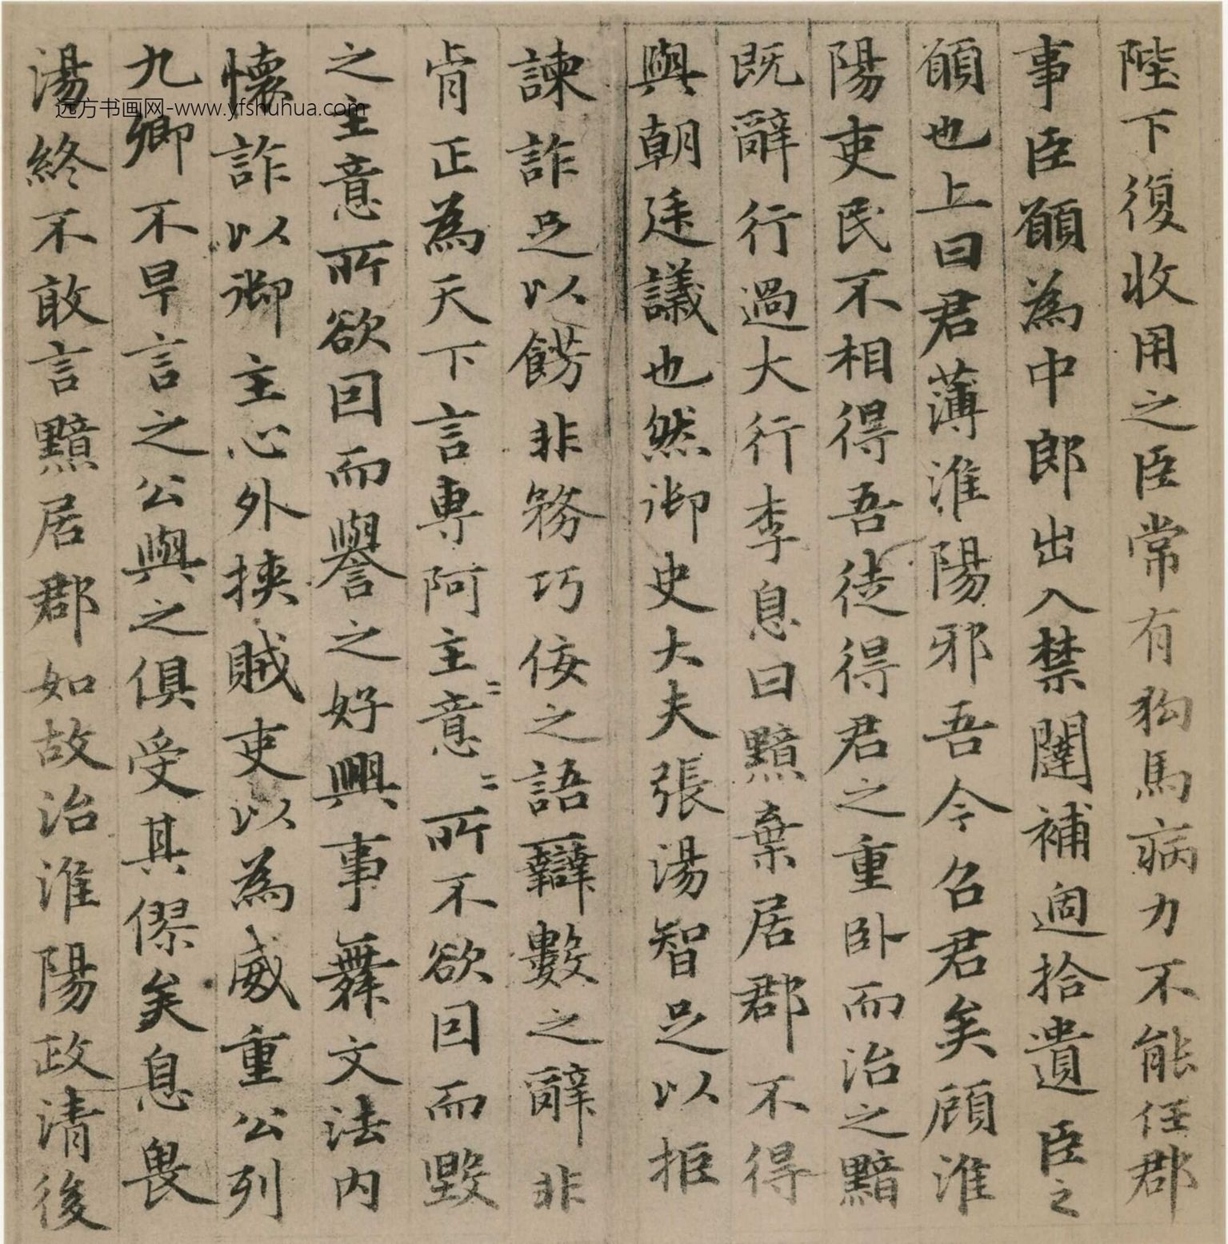 陛下復收用之臣常有狗馬病力不能任郡
事臣願為中郎出入禁闥補過拾遺臣之
願也上曰君薄淮陽邪吾今召君矣顧淮
陽吏民不相得吾徒得君之重卧而治之黯
既辭行過大行李息曰黯棄居郡不得
與朝廷議也然御史大夫張湯智足以拒
諫詐足以餝非務巧佞之語辯數之辭非
肯正為天下言專阿主〻意〻所不欲因而毀
之主意所欲因而譽之好興事舞文法內
懷詐以御主心外挾賊吏以為威重公列
九卿不早言之公與之俱受其僇矣息畏
湯終不敢言黯居郡如故治淮陽政清後
远方书画网-www.yfshuhua.com